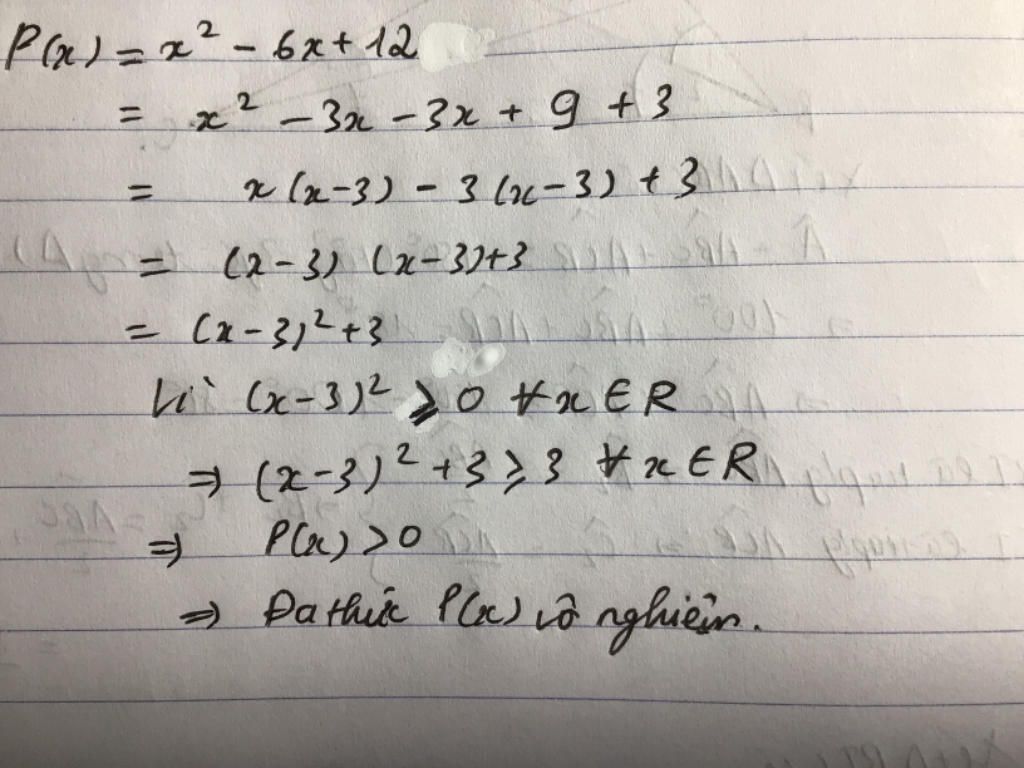 P(x) = x² - 6x + 12
= x² - 3x - 3x + 9 + 3
= x(x-3) - 3(x-3) + 3
= (x-3)(x-3)+3
= (x-3)²+3
Vì (x-3)² ⩾ 0 ∀x ∈ R
⇒ (x-3)² + 3 ⩾ 3 ∀x ∈ R
⇒ P(x) > 0
⇒ Đa thức P(x) vô nghiệm.